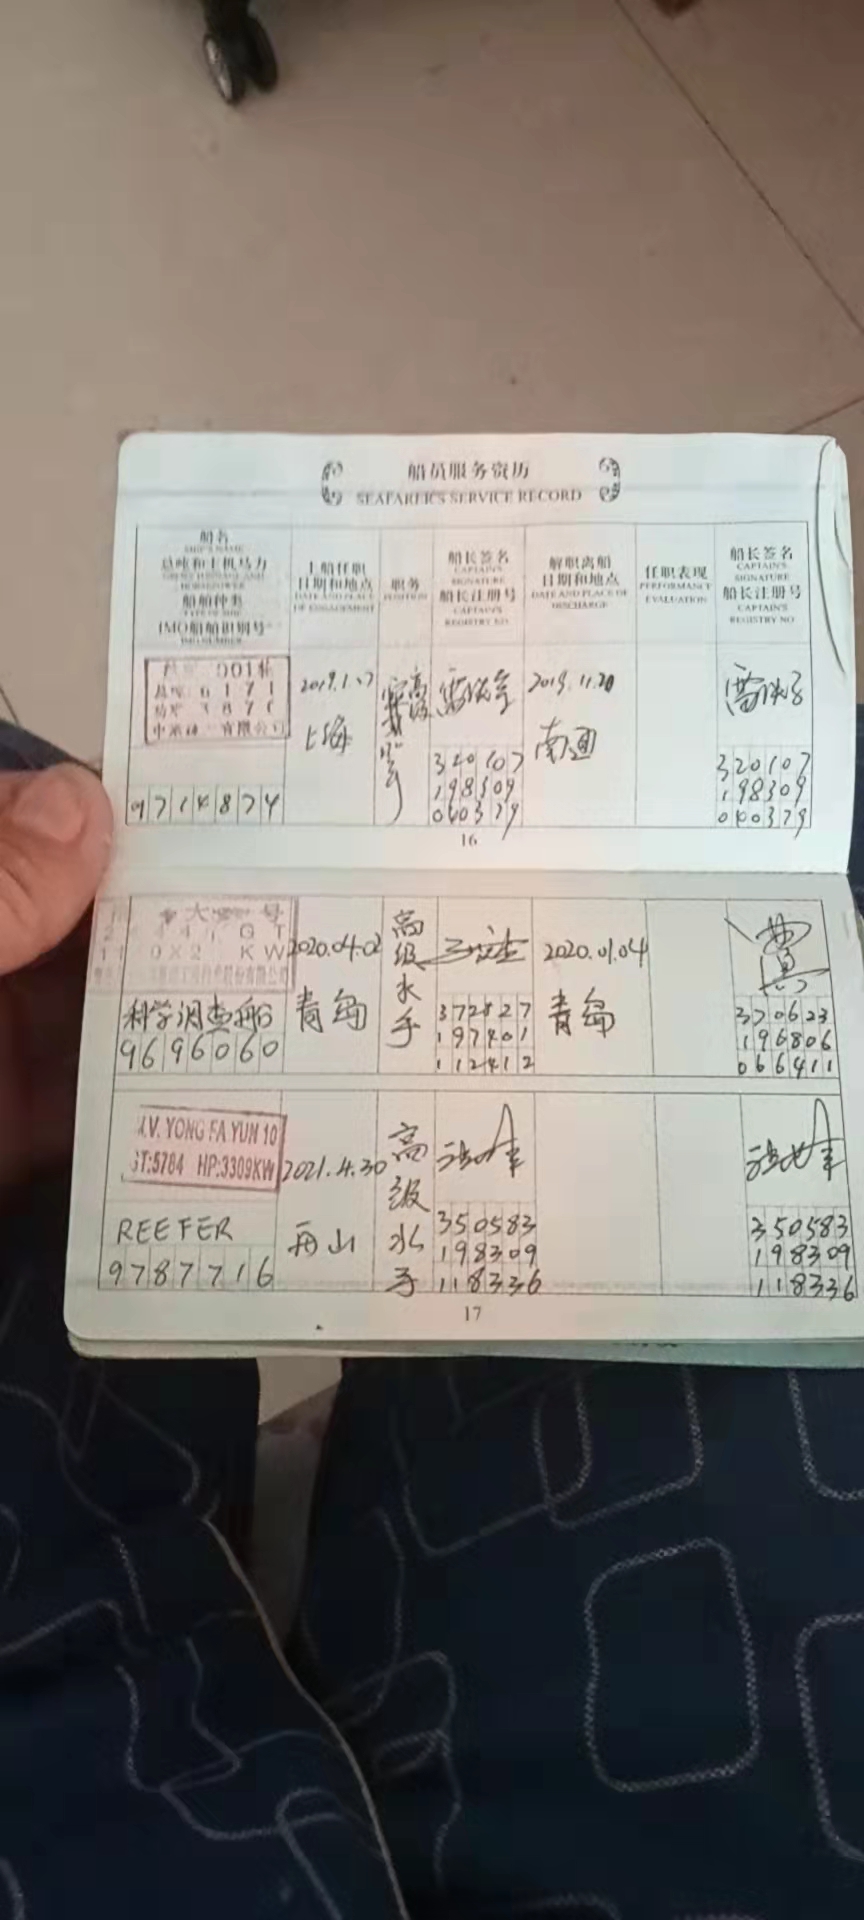 船员服务资历
SEAFARER'S SERVICE RECORD
船名
SHIP'S NAME
总吨和主机马力
GROSS TONNAGE AND
HORSEPOWER
船舶种类
TYPE OF SHIP
IMO船舶识别号
IMO NUMBER
上船任职
日期和地点
DATE AND PLACE
OF ENGAGEMENT
职务
POSITION
船长签名
CAPTAIN'S
SIGNATURE
船长注册号
CAPTAIN'S
REGISTRY NO
解职离船
日期和地点
DATE AND PLACE OF
DISCHARGE
任职表现
PERFORMANCE
EVALUATION
船长签名
CAPTAIN'S
SIGNATURE
船长注册号
CAPTAIN'S
REGISTRY NO
001
6171
有限公司
9714874
上海
高级
320107
198309
2019.11.20
南通
320107
198309
16
大 号
GT
KW
科学调查船
9696060
2020.04.02
青岛
高级水手
372827
197401
112412
2020.01.04
青岛
370623
196806
066411
M.V. YONG FA YUN 10
GT:5784 HP:3309KW
REEFER
9787716
2021.4.30
舟山
高级水手
350583
198309
118336
350583
198309
118336
17